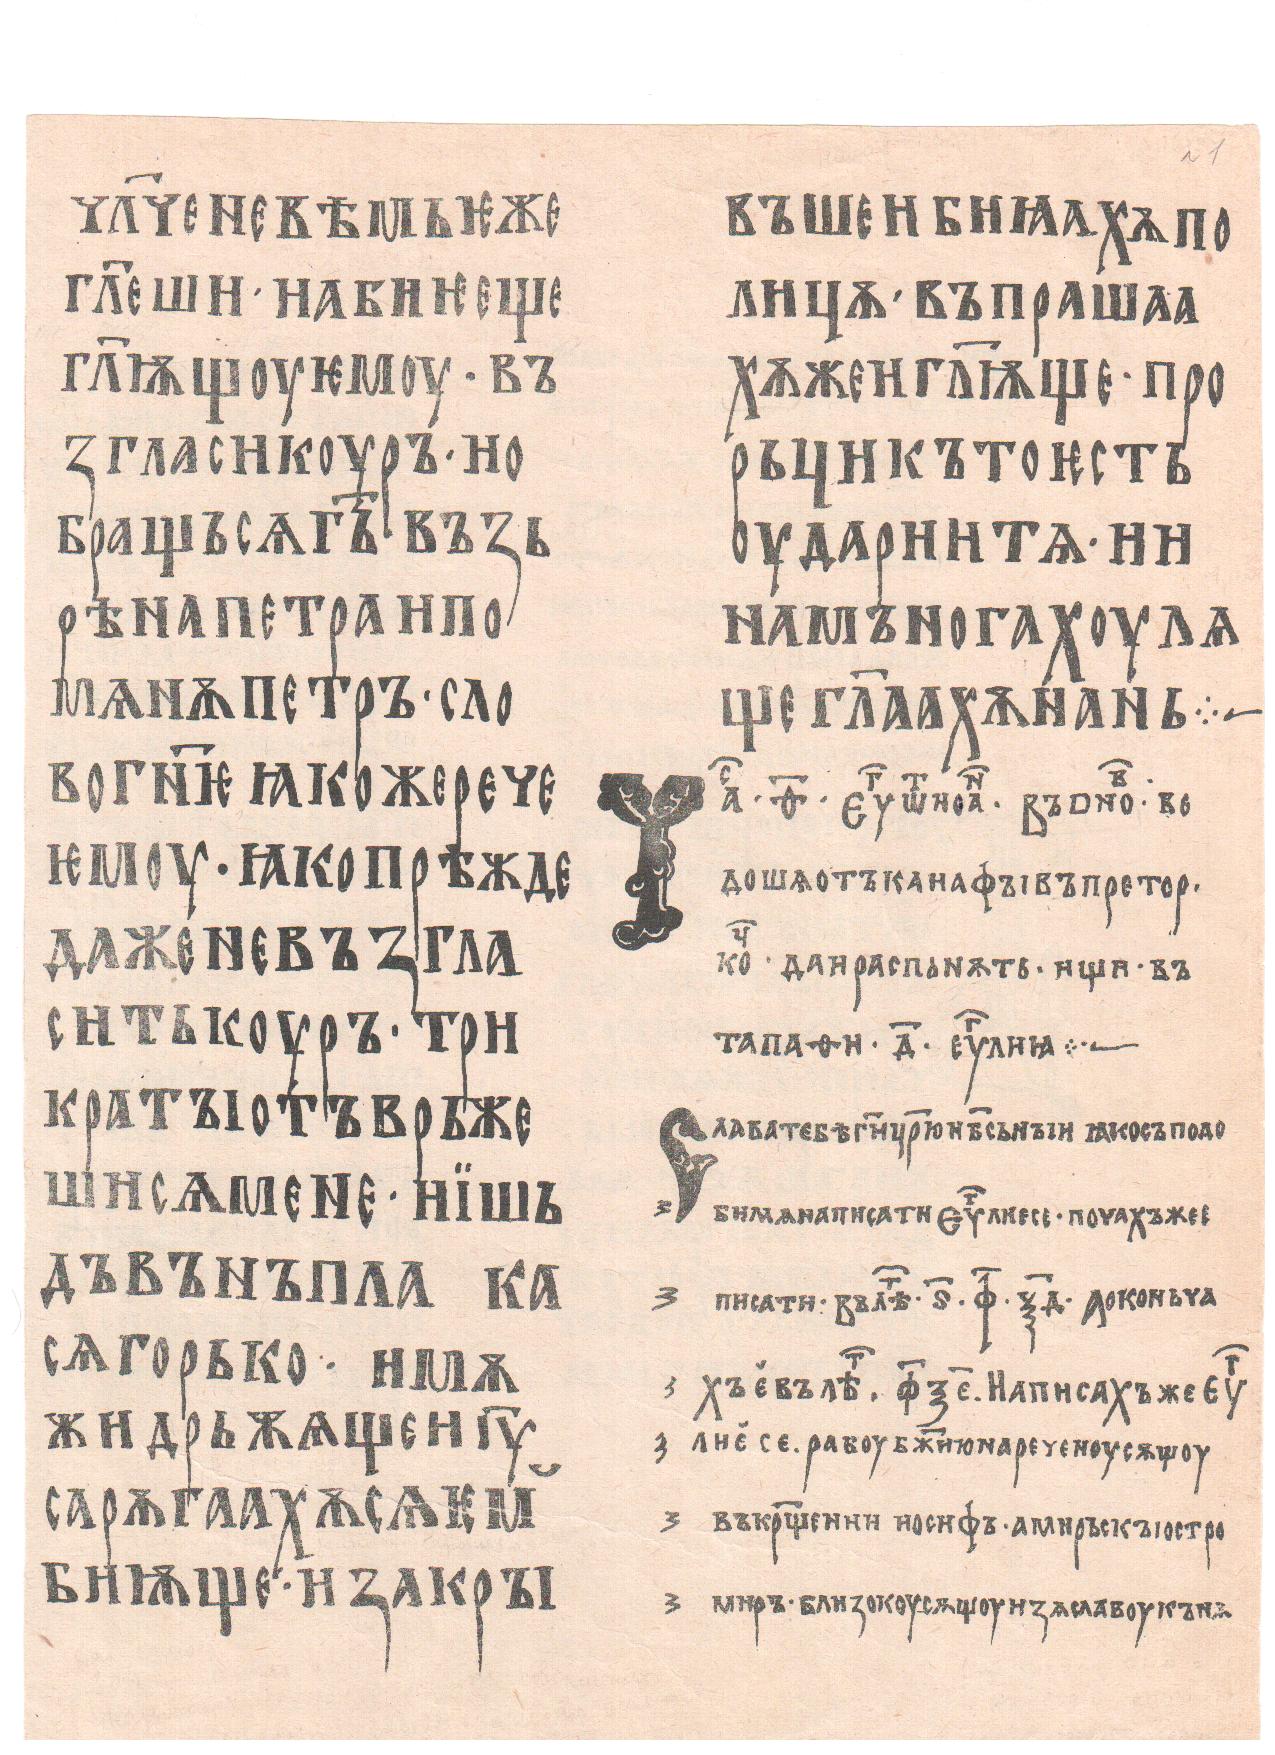 ꙋл҃че не вѣмь ѥже
гл҃еши · иабиѥ еще
гл҃ѭщоу ѥмоу · въ
згласи коуръ · ꙇ но
бращь сѧ г҃ъ · възь
рѣ на петра и по
мѧнѫ петръ · сло
во гн҃ѥ ꙗкоже рече
ѥмоу · ꙗко прѣжде
даже не възгла
сить коуръ · три
краты отъвръже
ши сѧ мене · и їшь
дъ вънъ пла ка
сѧ горько · и мѫ
жи дрьжѫщеи ıу҃
са рѫгаахѫ сѧ ѥм̆
биѭще · и закры
въше и биꙗахѫ по
лицѫ · въпрашаа
хѫ же и гл҃ѭще · про
рьци къто ѥсть
оударии тѧ · ин
на мънога хоулѧ
ще гл҃аахѫ на нь ⁘
до шѧ отъ канафы въ претор ·
ко ч҃ · да и распьнѫть · ищи · въ
та па ѳи · д҃ · еуг҃лиꙗ ⁘
лава тебѣ ги҃ цр҃ю нб҃сьныи ꙗко съподо
би мѧ написати еуг҃лие се · почахъ же е
писати · въ лѣт҃ · ѕ҃ · ф҃ · ѯ҃д · А оконьча
хъ е въ лѣт҃ · ф҃ ѯ е҃ · Написахъ же еуг҃
лие се · рабоу бж҃ию нареченоу сѫщоу
въ кр҃щении иосифъ · а мирьскы остро
миръ · близокоу сѫщоу изѧславоу кънѧ